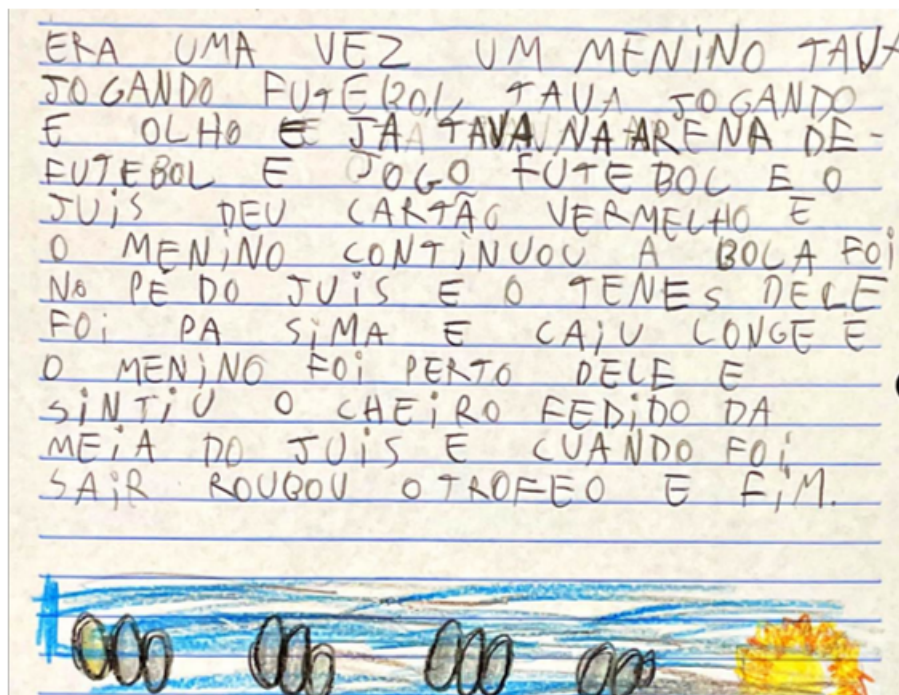 ERA UMA VEZ UM MENINO TAVA
JOGANDO FUTEBOL TAVA JOGANDO
E OLHO E JÁ TAVA NA ARENA DE-
FUTEBOL E JOGO FUTEBOL E O
JUIS DEU CARTÃO VERMELHO E
O MENINO CONTINUOU A BOLA FOI
NO PE DO JUIS E O TENES DELE
FOI PA SIMA E CAIU LONGE E
O MENINO FOI PERTO DELE E
SINTIU O CHEIRO FEDIDO DA
MEIA DO JUIS E CUANDO FOI
SAIR ROUBOU O TROFEO E FIM.